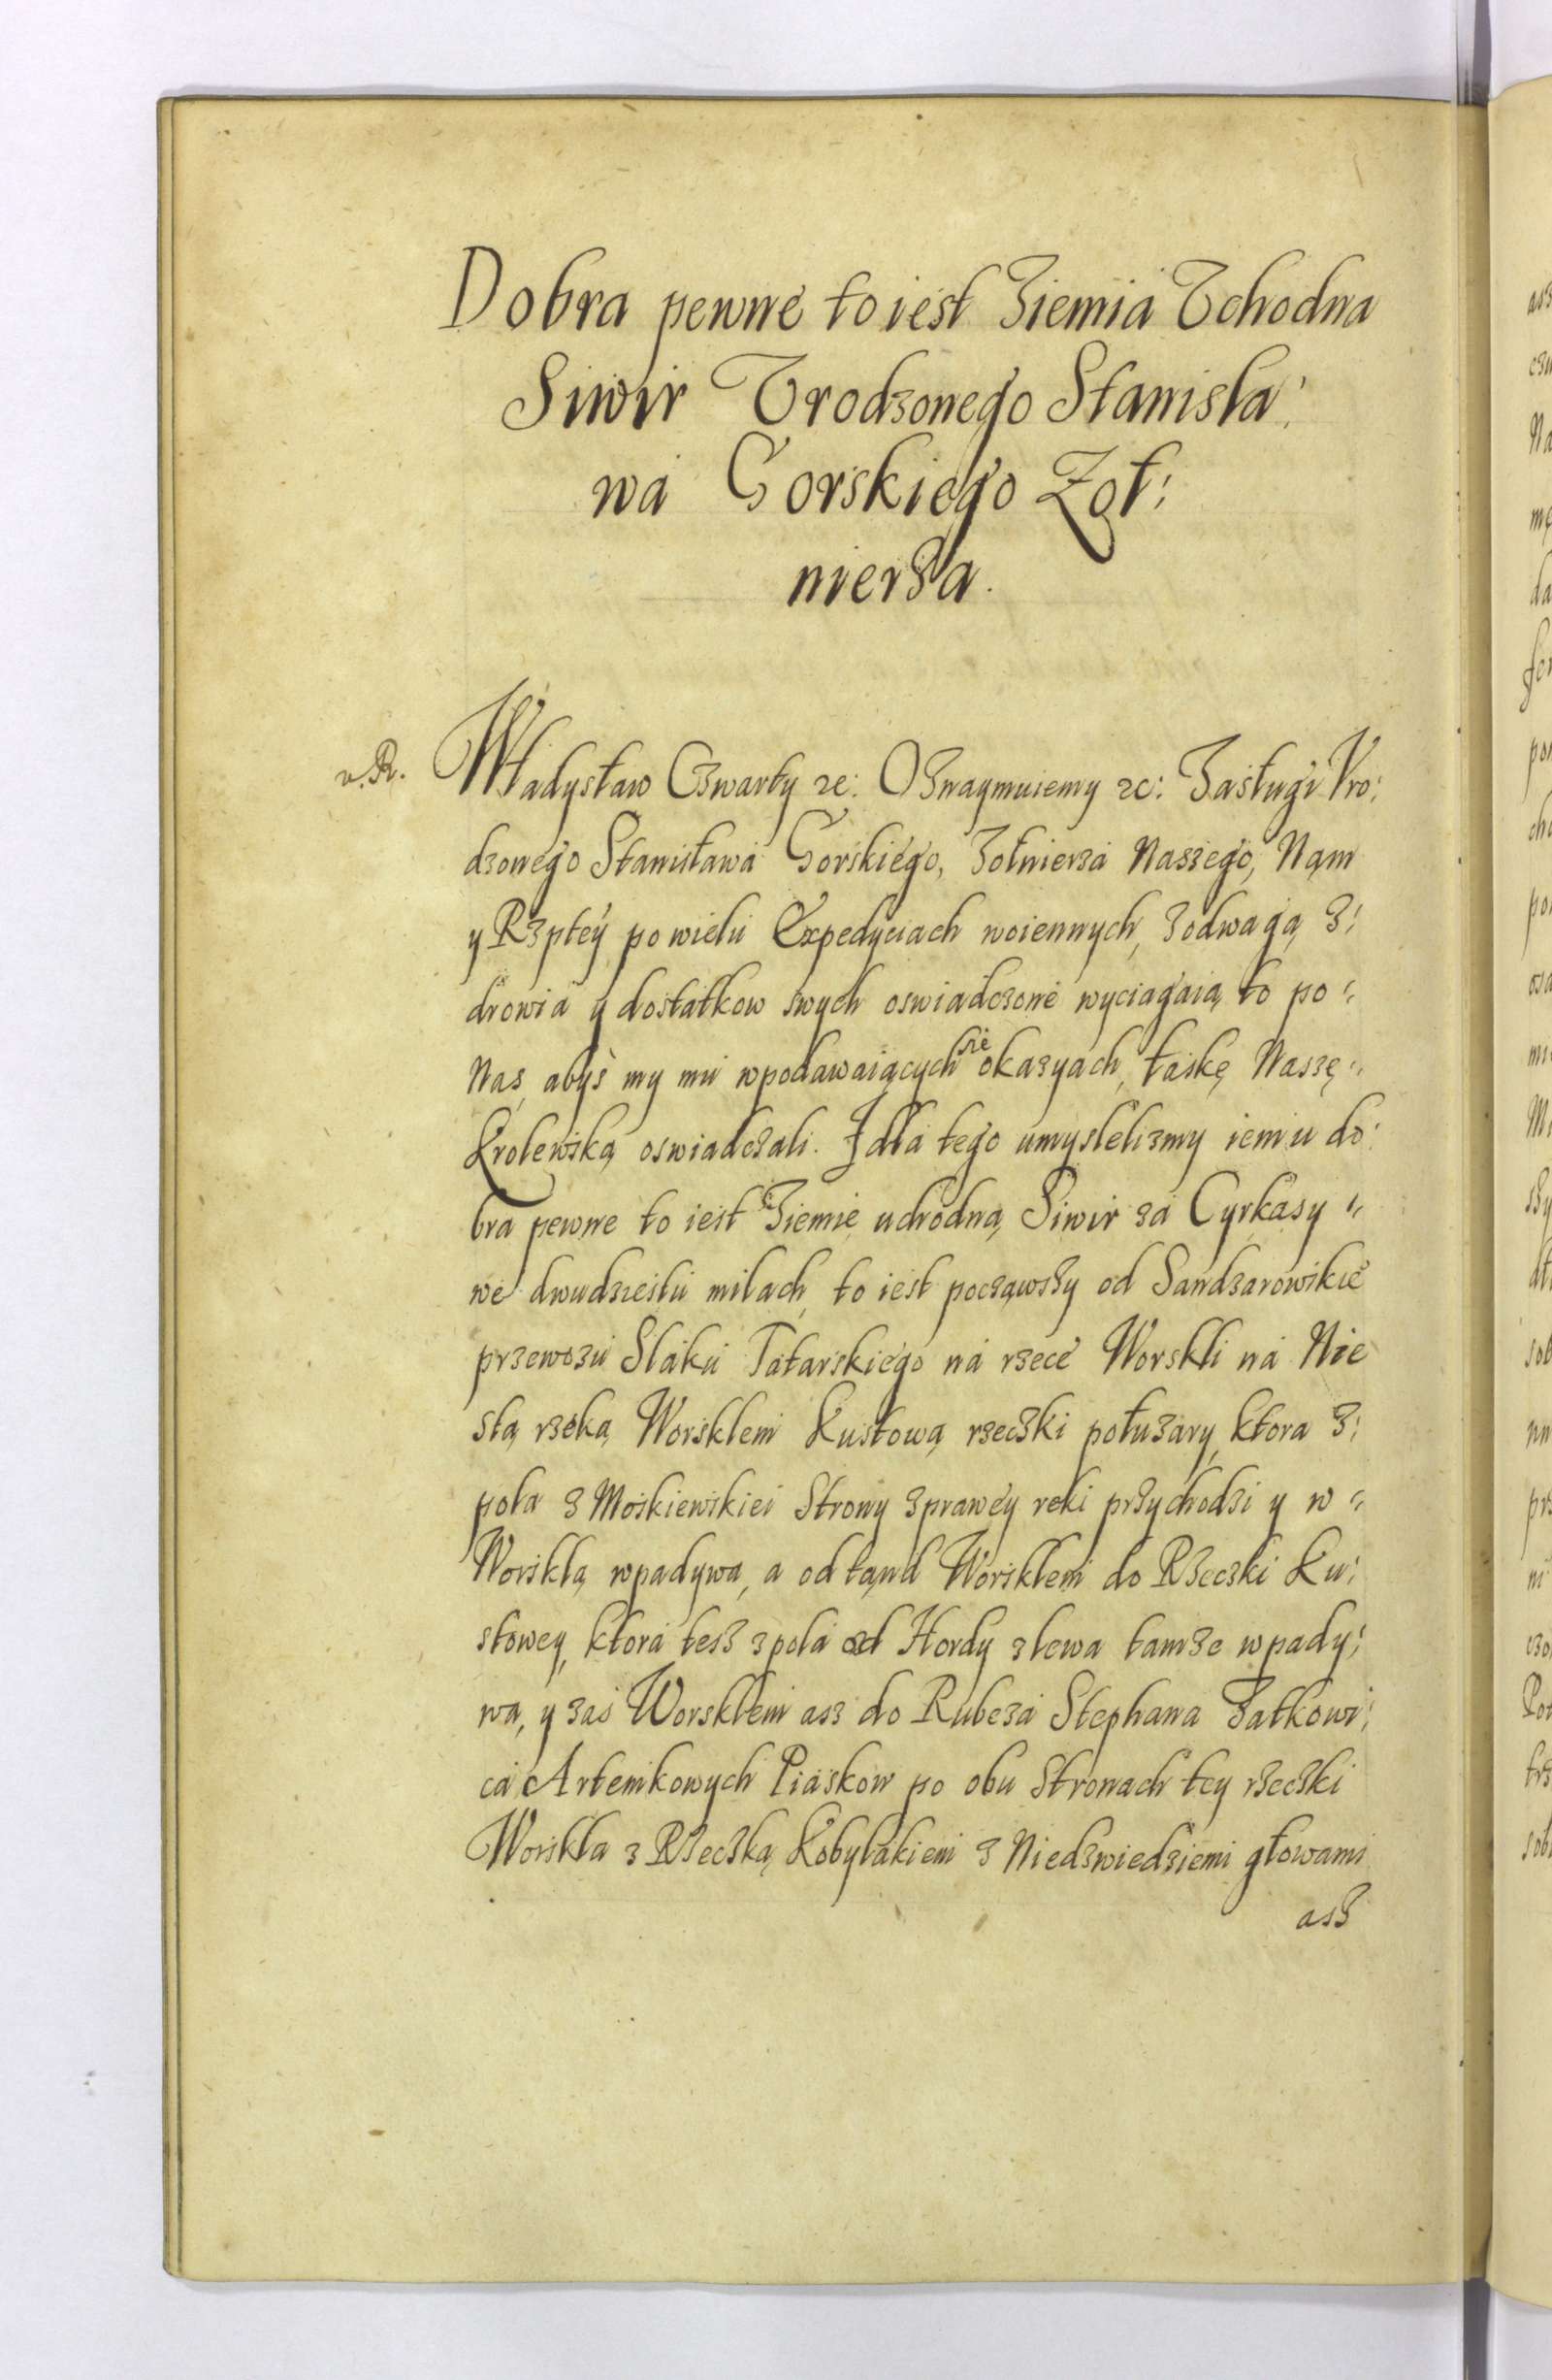 Dobra pewne to iest Ziemia Uchodna
Siwir Urodzonego Stanisla:
wa Gorskiego Zoł:
nierza.
v. R. Władysław Czwarty &c: Oznaymuiemy &c: Zasługi Vro:
dzonego Stanisława Gorskiego, Zołnierza Naszego, Nąm
y Rzptey po wielu Expedyciach woiennych, zodwagą z:
drowia y dostatkow swych oswiadczone wyciagaią to po
Nas, abyś my mu wpodawaiących się okazyach, łaskę Naszę
Krolewską oswiadczali. I dla tego umyslelizmy iemu do:
bra pewne to iest Ziemię uchodną Siwir za Cyrkasy
we dwudziestu milach, to iest począwszy od Sandzarowskie
przewozu Slaku Tatarskiego na rzece Worskli na Nie
stą rzeką Worsklem Kustową rzeczki połuzary, ktora z:
pola z Moskiewskiei Strony zprawey reki przychodzi y w
Worsklą wpadywa, a od tąnd Worsklem do Rzeczki Ku:
stowey, ktora tesz zpola od Hordy zlewa tamze wpady:
wa, y zaś Worsklem asz do Rubeza Stephana Zatkowi:
ca Artemkowych Piaskow po obu Stronach tey rzeczki
Worskla z Rzeczką Kobylakiem z Niedzwiedziemi głowami
asz